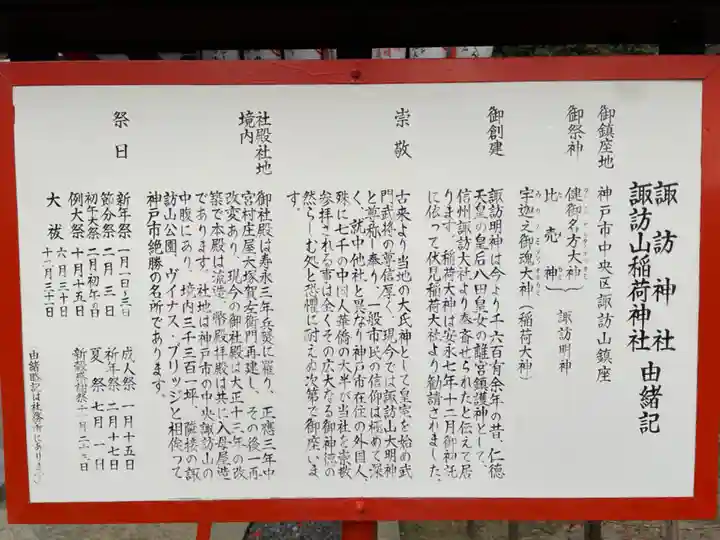 諏訪神社
諏訪山稲荷神社
由緒記
御鎮座地
神戸市中央区諏訪山鎮座
御祭神
健御名方大神
比売神
諏訪明神
宇迦之御魂大神(稲荷大神)
御創建
諏訪明神は今より千六百有余年の昔、仁徳
天皇の皇后八田皇女の離宮鎮護神として、
信州諏訪大社より奉斎せられたと伝えて居
ります。稲荷大神は安永七年十二月御神託
に依って伏見稲荷大社より勧請されました。
崇敬
古来より当地の大氏神として皇室を始め武
門武将の尊信厚く、現今では諏訪山大明神
と尊称し奉り、一般市民の信仰は極めて深
く、就中他社と異なり神戸市在住の外国人、
殊に七千の中国人華僑の大半が当社を崇敬
参拝される事は全くその広大なる御神徳の
然らしむ処と恐懼に耐えぬ次第で御座いま
す。
社殿社地
境内
御社殿は寿永三年兵燹に罹り、正應三年中
宮村庄屋大塚賀左衛門再建し、その後一再
改変あり、現今の御社殿は大正十三年の改
築で本殿は流造、幣殿拝殿は共に入母屋造
であります。社地は神戸市の中央諏訪山の
中腹にあり、境内三千三百一坪、隣接の諏
訪山公園、ヴィナス・ブリッジと相俟って
神戸市絶勝の名所であります。
祭日
新年祭 一月一日〜三日
節分祭 二月三日
初午大祭 二月初午の日
例大祭 十月十五日
大祓 六月三十日
十二月三十一日
成人祭 一月十五日
祈年祭 二月十七日
夏祭 七月一日
新穀感謝祭 十一月二十三日
由緒略記は社務所にあります。